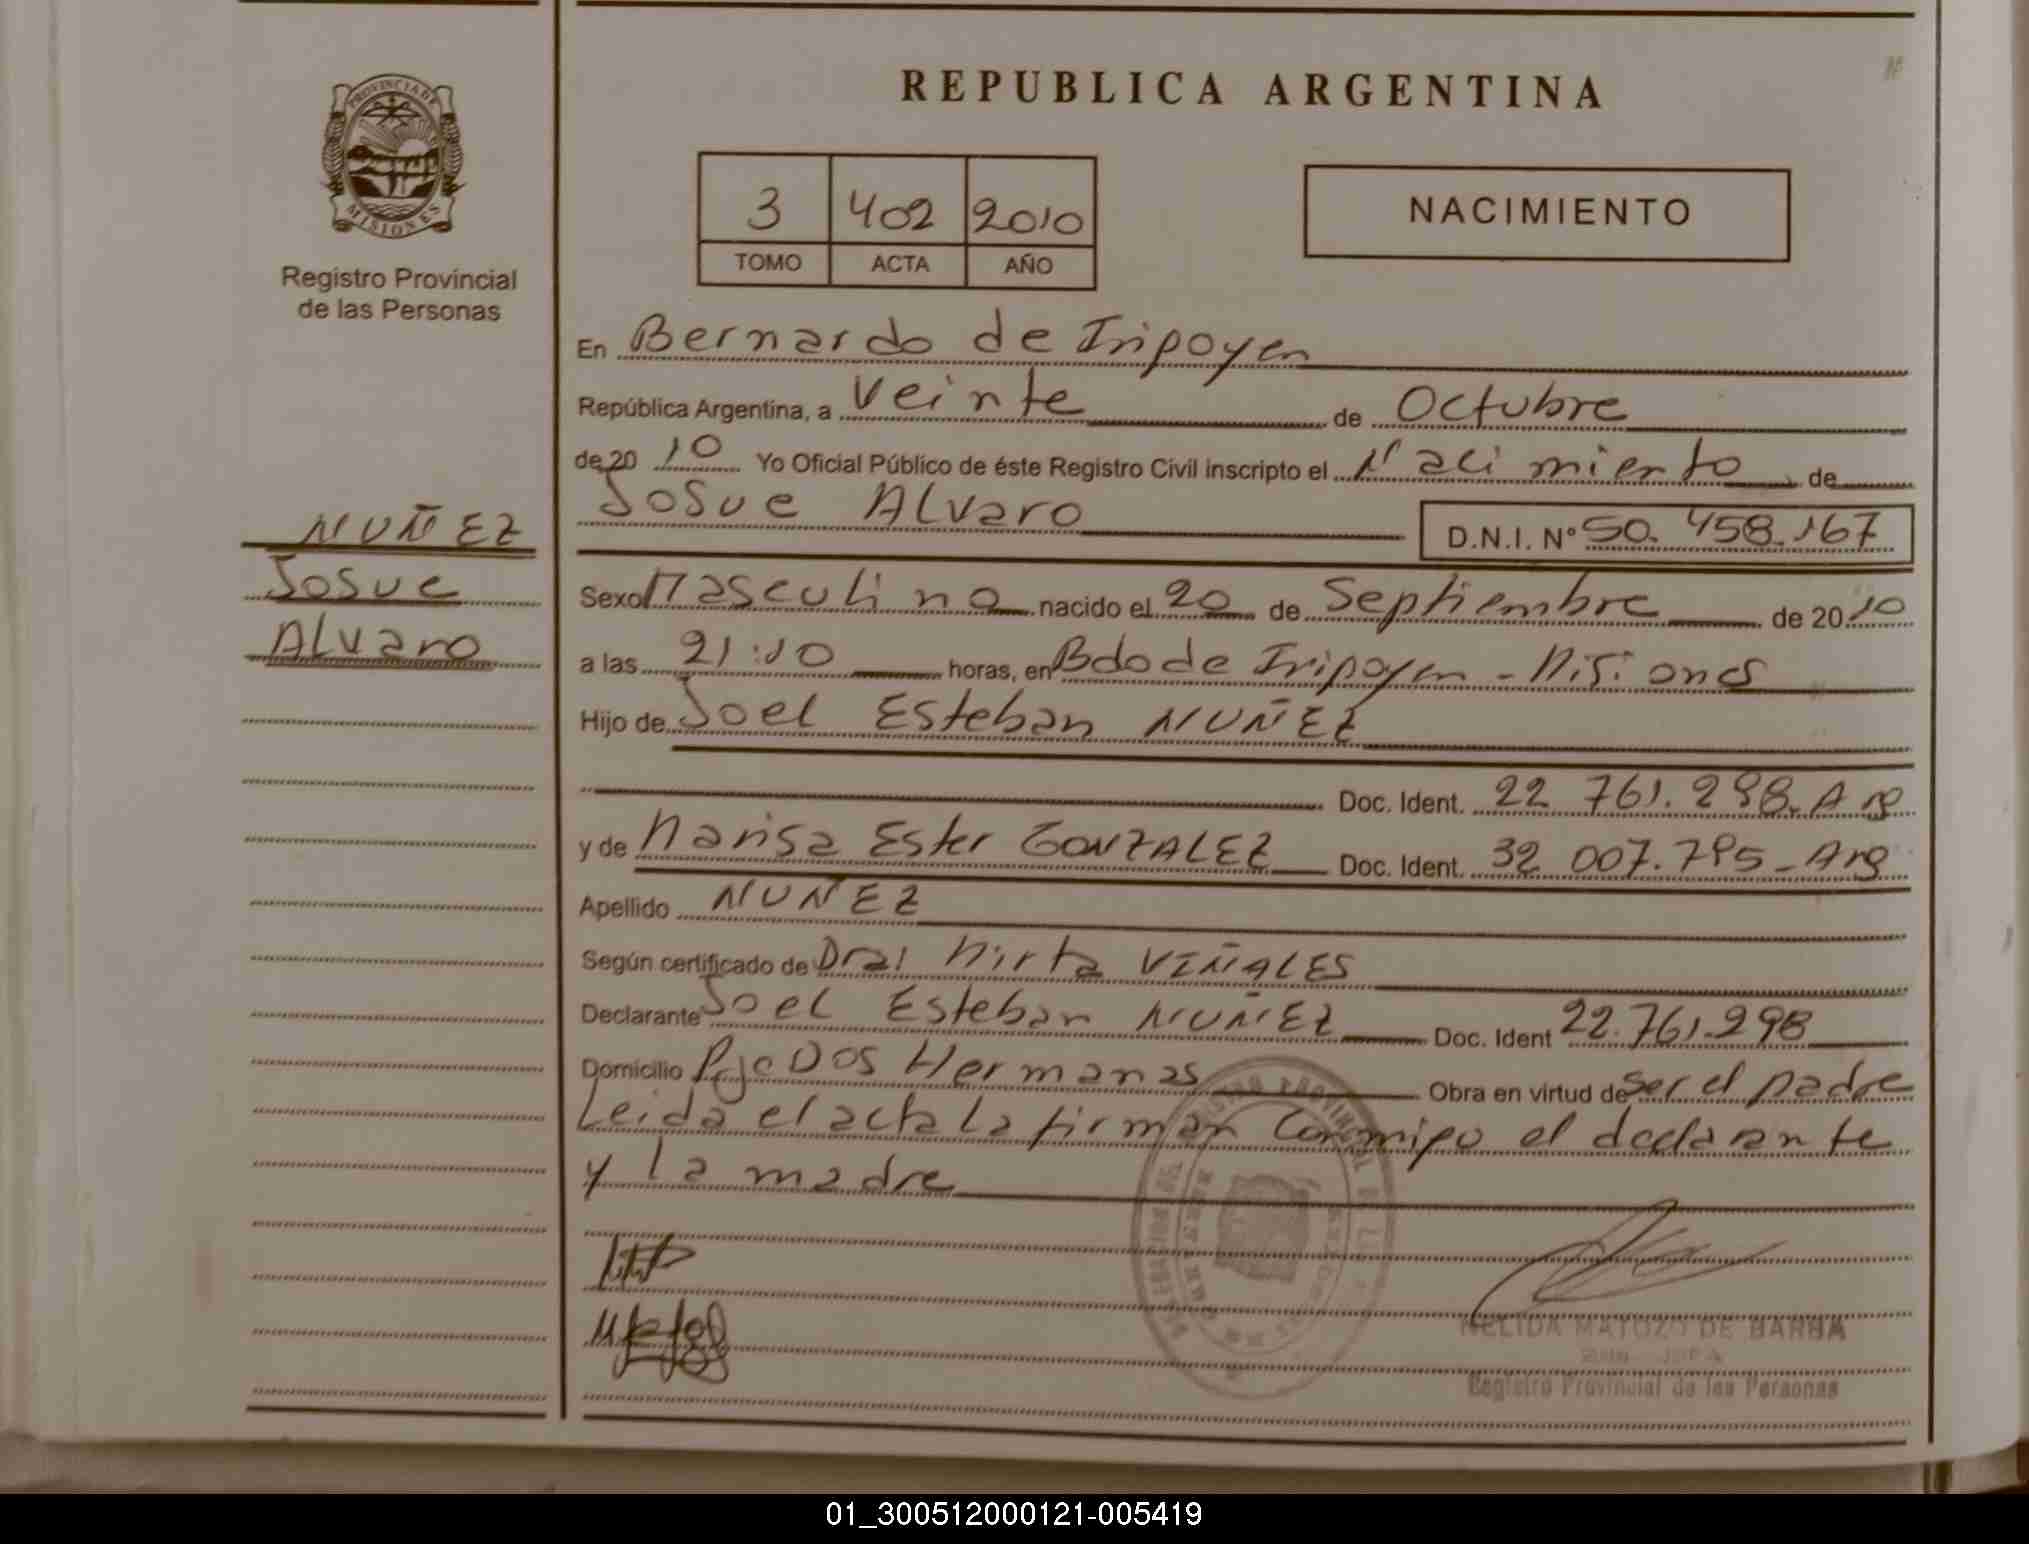 REPUBLICA ARGENTINA
PROVINCIA DE
MISIONES
Registro Provincial
de las Personas
3 402 2010
TOMO ACTA AÑO
NACIMIENTO
En Bernardo de Iripoyen
República Argentina, a veinte de Octubre
de 20 10 Yo Oficial Público de éste Registro Civil inscripto el Nacimiento de
Josue Alvaro
D.N.I. N° 50.458.167
NUÑEZ
Josue
Alvaro
Sexo Masculino nacido el 20 de Septiembre de 20 10
a las 21:10 horas, en Bdo de Iripoyen - Misiones
Hijo de Joel Esteban NUÑEZ
Doc. Ident. 22 761.298. Arg
y de Marisa Ester GONZALEZ Doc. Ident. 32 007.795 - Arg
Apellido NUÑEZ
Según certificado de Dra. Mirta VIÑALES
Declarante Joel Esteban NUÑEZ Doc. Ident 22.761.298
Domicilio Pje Dos Hermanas Obra en virtud de ser el padre
Leida el acta la firman conmigo el declarante
y la madre
NELIDA MATOZO DE BARBA
Registro Provincial de las Personas
01_300512000121-005419